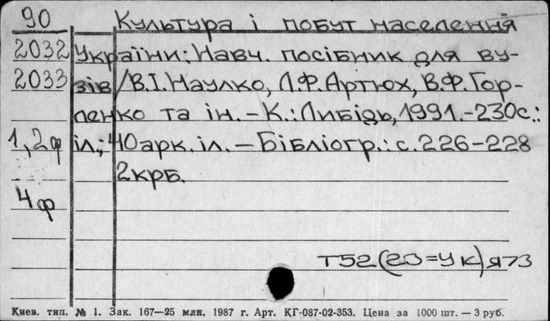 90 Культура і побут населення
2032 України: Навч. посібник для ву-
2033 зів/В.І.Наулко, Л.Ф.Артюх, В.Ф.Гор-
ленко та ін. – К.: Либідь, 1991. – 230с.:
1,2ф іл.; 40арк.іл. – Бібліогр.: с. 226–228
2крб.
4ф
Т52(2Э=УК)я73
Киев. тип. № 1. Зак. 167—25 млн. 1987 г. Арт. КГ-087-02-353. Цена за 1000 шт. — 3 руб.